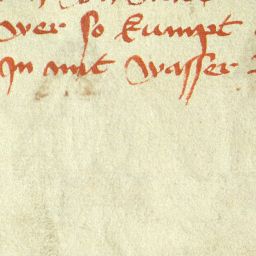 wer so kumpt
in mit wasser